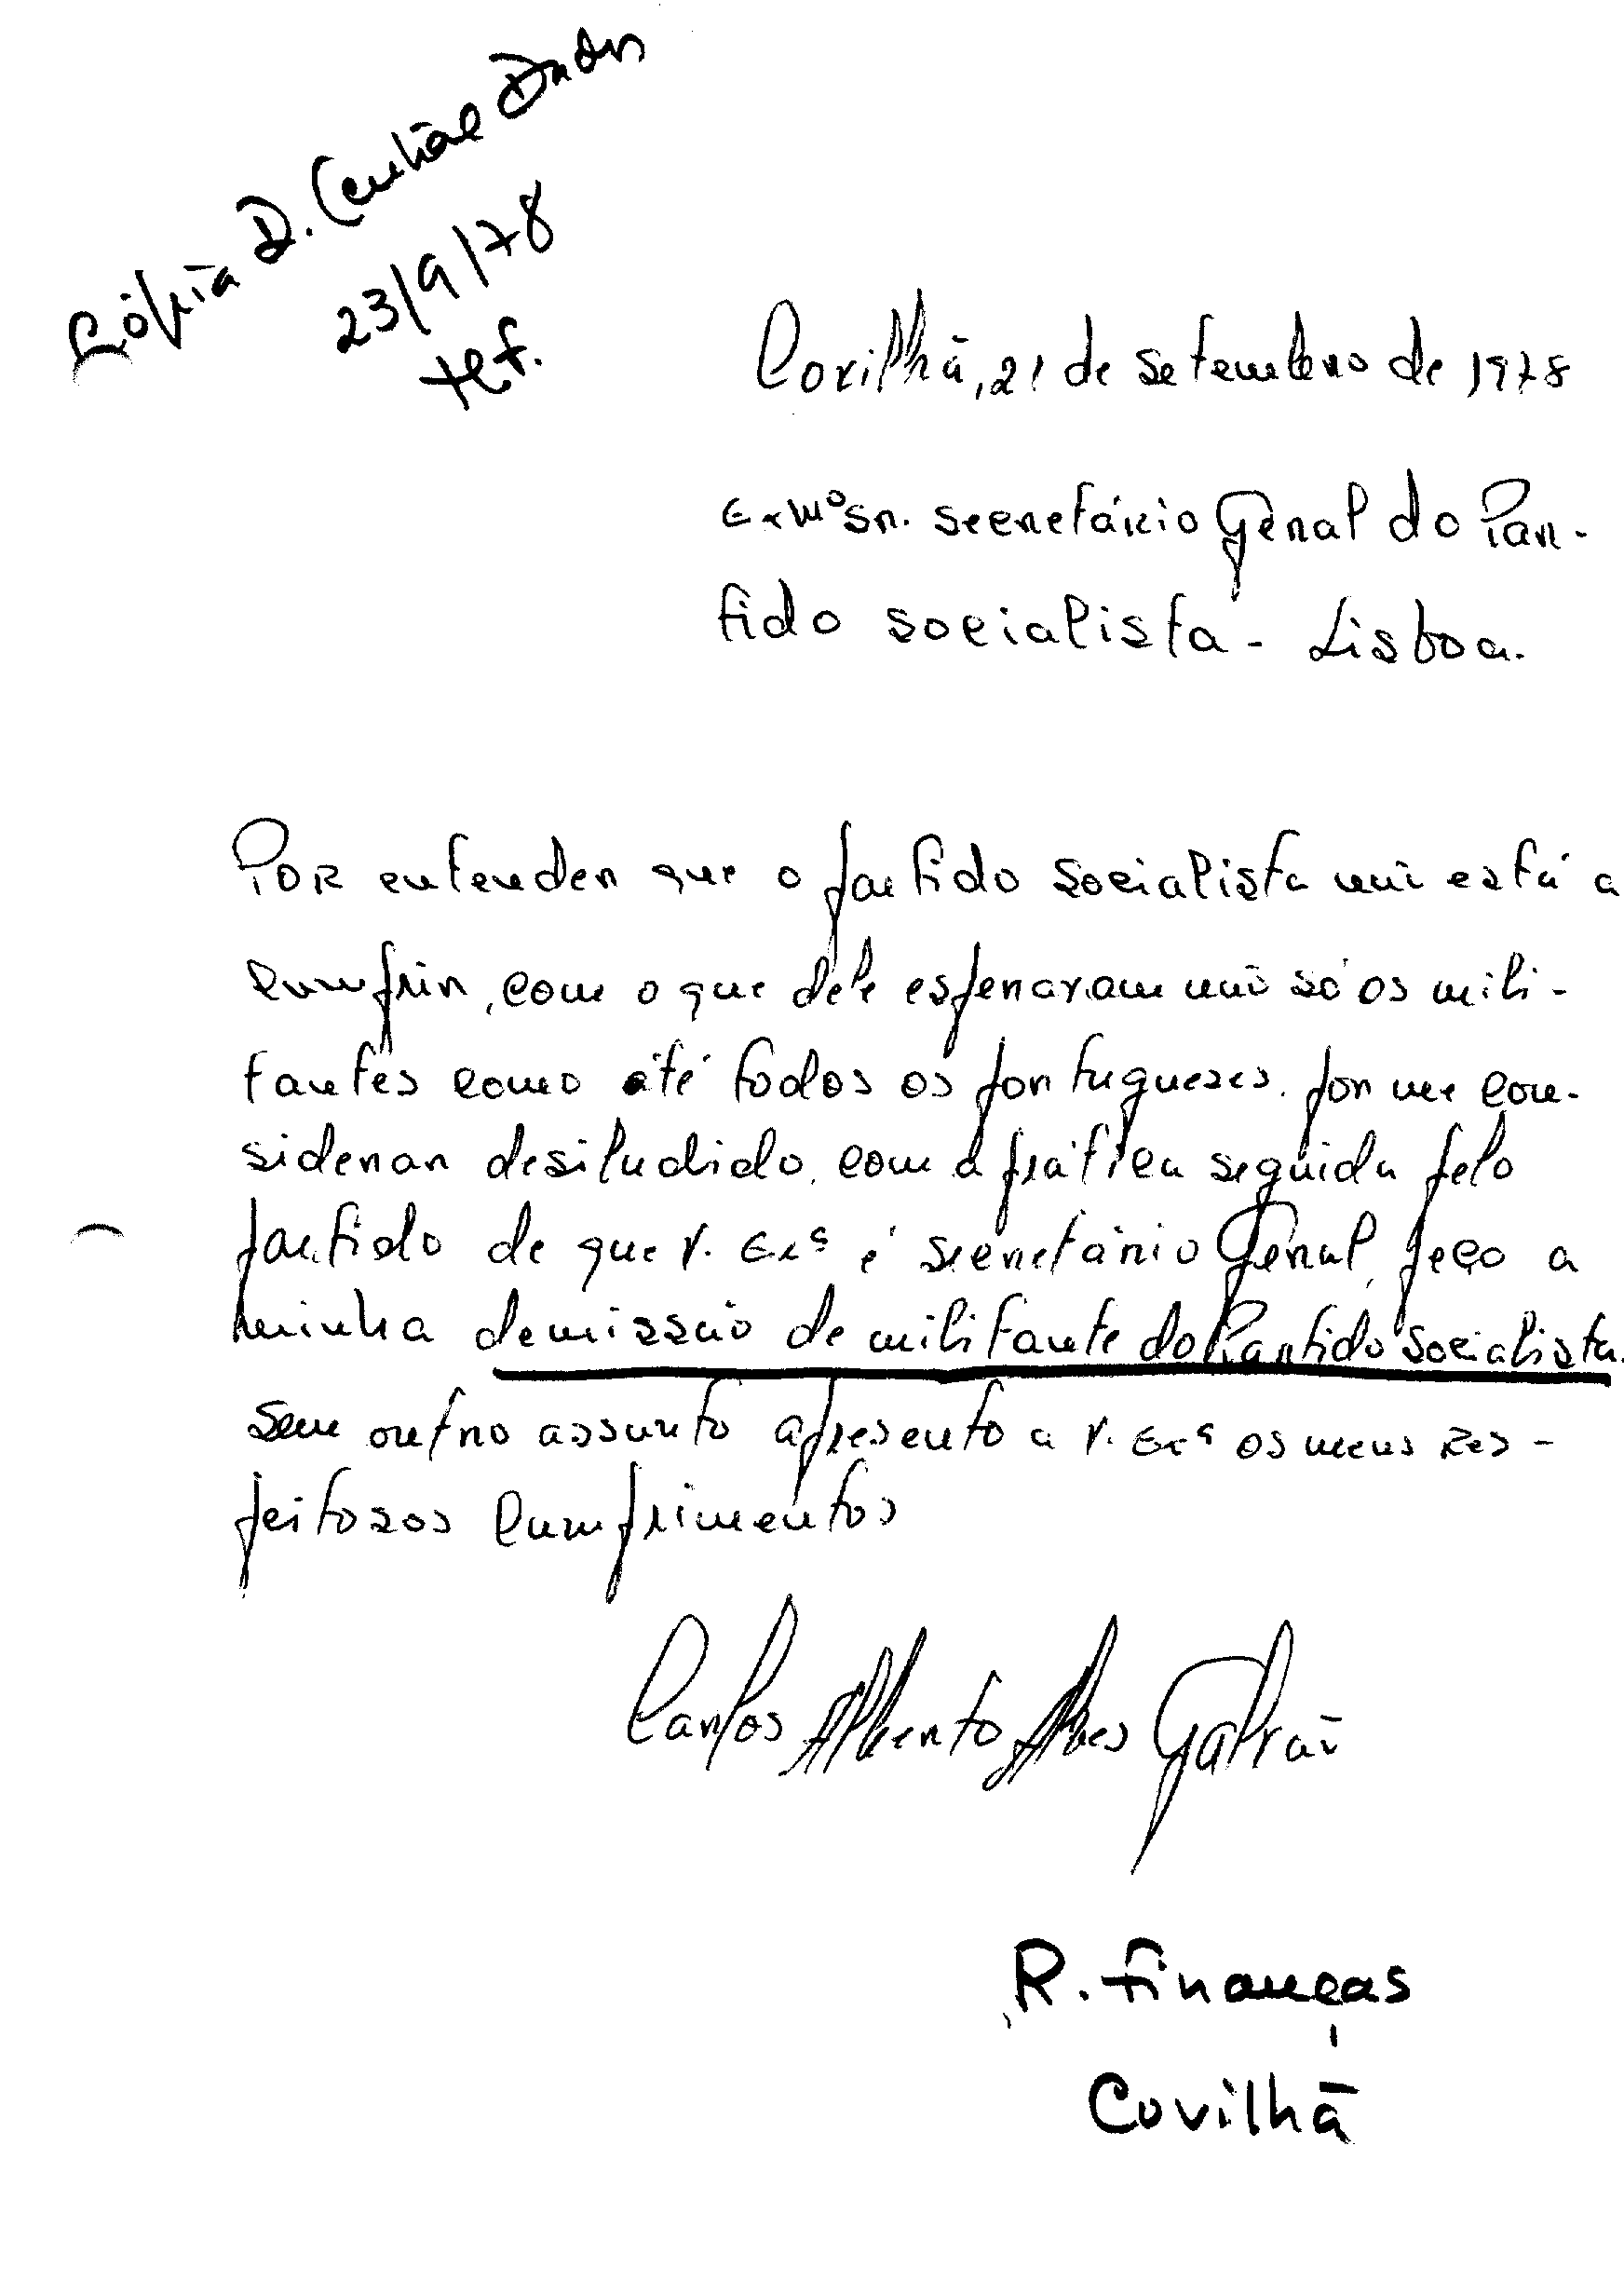 Cópia D. Central Dados
23/9/78
Covilhã, 21 de setembro de 1978
Exmº Sr. secretário Geral do Par-
tido socialista - Lisboa.
Por entender que o partido socialista não está a
cumprir, com o que dele esperavam não só os mili-
tantes como até todos os portugueses. por me con-
siderar desiludido, com a prática seguida pelo
partido de que V. Exª é secretário Geral, peço a
minha demissão de militante do Partido socialista.
Sem outro assunto apresento a V. Exª os meus res-
peitosos cumprimentos
Carlos Alberto Alves Galvão
R. Finanças
Covilhã